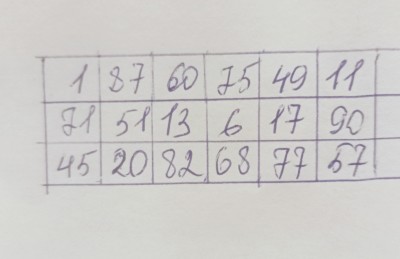 1 87 60 75 49 11
71 51 13 6 17 90
45 20 82 68 77 57